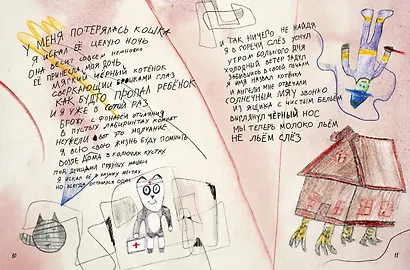 У МЕНЯ ПОТЕРЯЛАСЬ КОШКА
Я ИСКАЛ ЕЁ ЦЕЛУЮ НОЧЬ
ОНА ВЕСИТ СОВСЕМ НЕМНОЖКО
ЕЁ ПРИНЕСЛА МОЯ ДОЧЬ
МЯГКИЙ ЧЁРНЫЙ КОТЁНОК
СВЕРКАЮЩИЙ БРОШКАМИ ГЛАЗ
КАК БУДТО ПРОПАЛ РЕБЁНОК
И Я УЖЕ В СОТЫЙ РАЗ
БРОЖУ С ФОНАРЁМ
В ПУСТЫХ ЛАБИРИНТАХ КОМНАТ
НЕУЖЕЛИ ВОТ ЭТО МОЛЧАНИЕ
Я ВСЮ СВОЮ ЖИЗНЬ БУДУ ПОМНИТЬ
ВОЗЛЕ ДОМА В КОЛЮЧИХ КУСТАХ
ПОД ДНИЩАМИ ГРУЗНЫХ МАШИН
Я ИСКАЛ ЕЁ МЕСТАХ
НО ВСЕГДА ОСТАВАЛСЯ ОДИН
10
И ТАК НИЧЕГО НЕ НАЙДЯ
Я В ГОРЕЧИ СЛЁЗ УСНУЛ
УТРОМ БОЛЬНОГО ДНЯ
ХОЛОДНЫЙ ВЕТЕР ЗАДУЛ
ЗАБИВШИСЬ В СВОЕЙ ПЕЧАЛИ
Я ИМЯ НАЗВАЛ КОТЁНКА
И АНГЕЛЫ МНЕ ОТВЕЧАЛИ
СОЛНЕЧНЫМ МЯУ ЗВОНКО
ИЗ ЯЩИКА С ЧИСТЫМ БЕЛЬЁМ
ВЫГЛЯНУЛ ЧЁРНЫЙ НОС
МЫ ТЕПЕРЬ МОЛОКО ЛЬЁМ
НЕ ЛЬЁМ СЛЁЗ
11